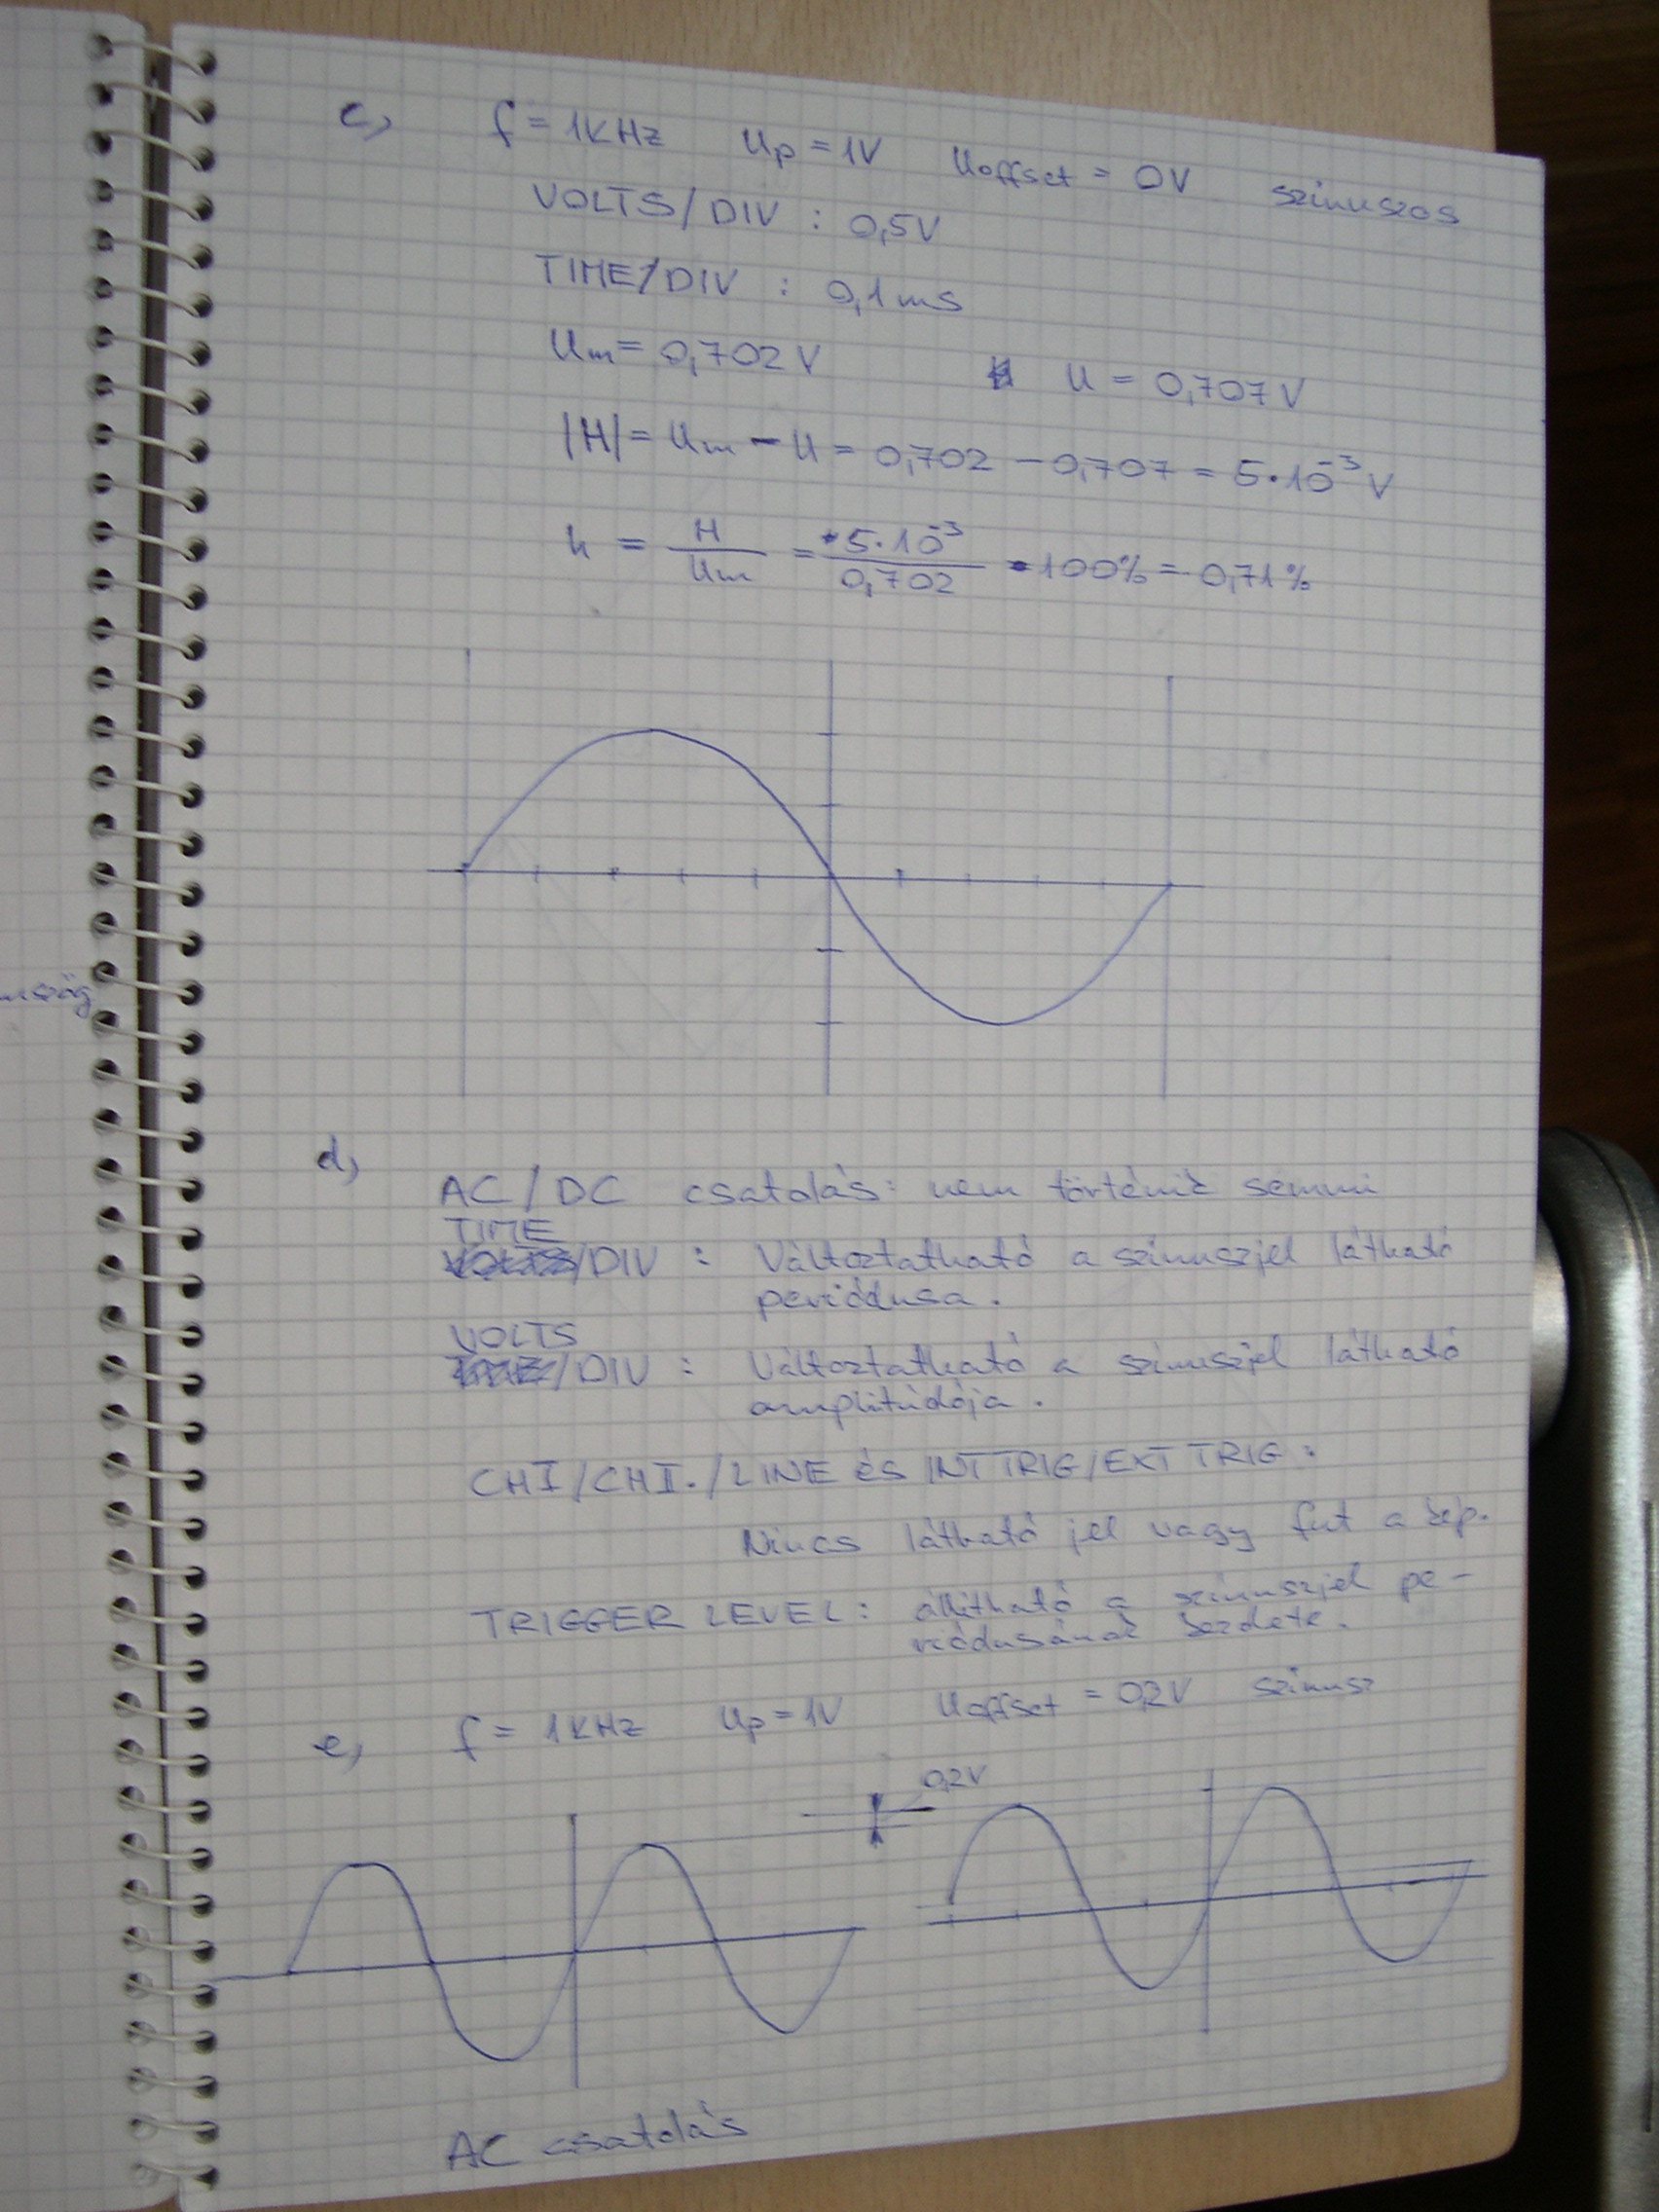 c, f = 1KHz Up = 1V Uoffset = 0V szinuszos
VOLTS/DIV : 0,5V
TIME/DIV : 0,1ms
Um = 0,702V U = 0,707V
|H| = Um - U = 0,702 - 0,707 = 5·10⁻³V
h = H/Um = 5·10⁻³/0,702 · 100% = 0,71%
nszög
d,
AC/DC csatolás: nem történik semmi
TIME
/DIV : Változtatható a szinuszjel látható
periódusa.
VOLTS
/DIV : Változtatható a szinuszjel látható
amplitúdója.
CHI/CHII./LINE és INT TRIG/EXT TRIG:
Nincs látható jel vagy fut a kép.
TRIGGER LEVEL: állítható a szinuszjel pe-
riódusának kezdete.
e, f = 1KHz Up = 1V Uoffset = 0,2V szinusz
0,2V
AC csatolás